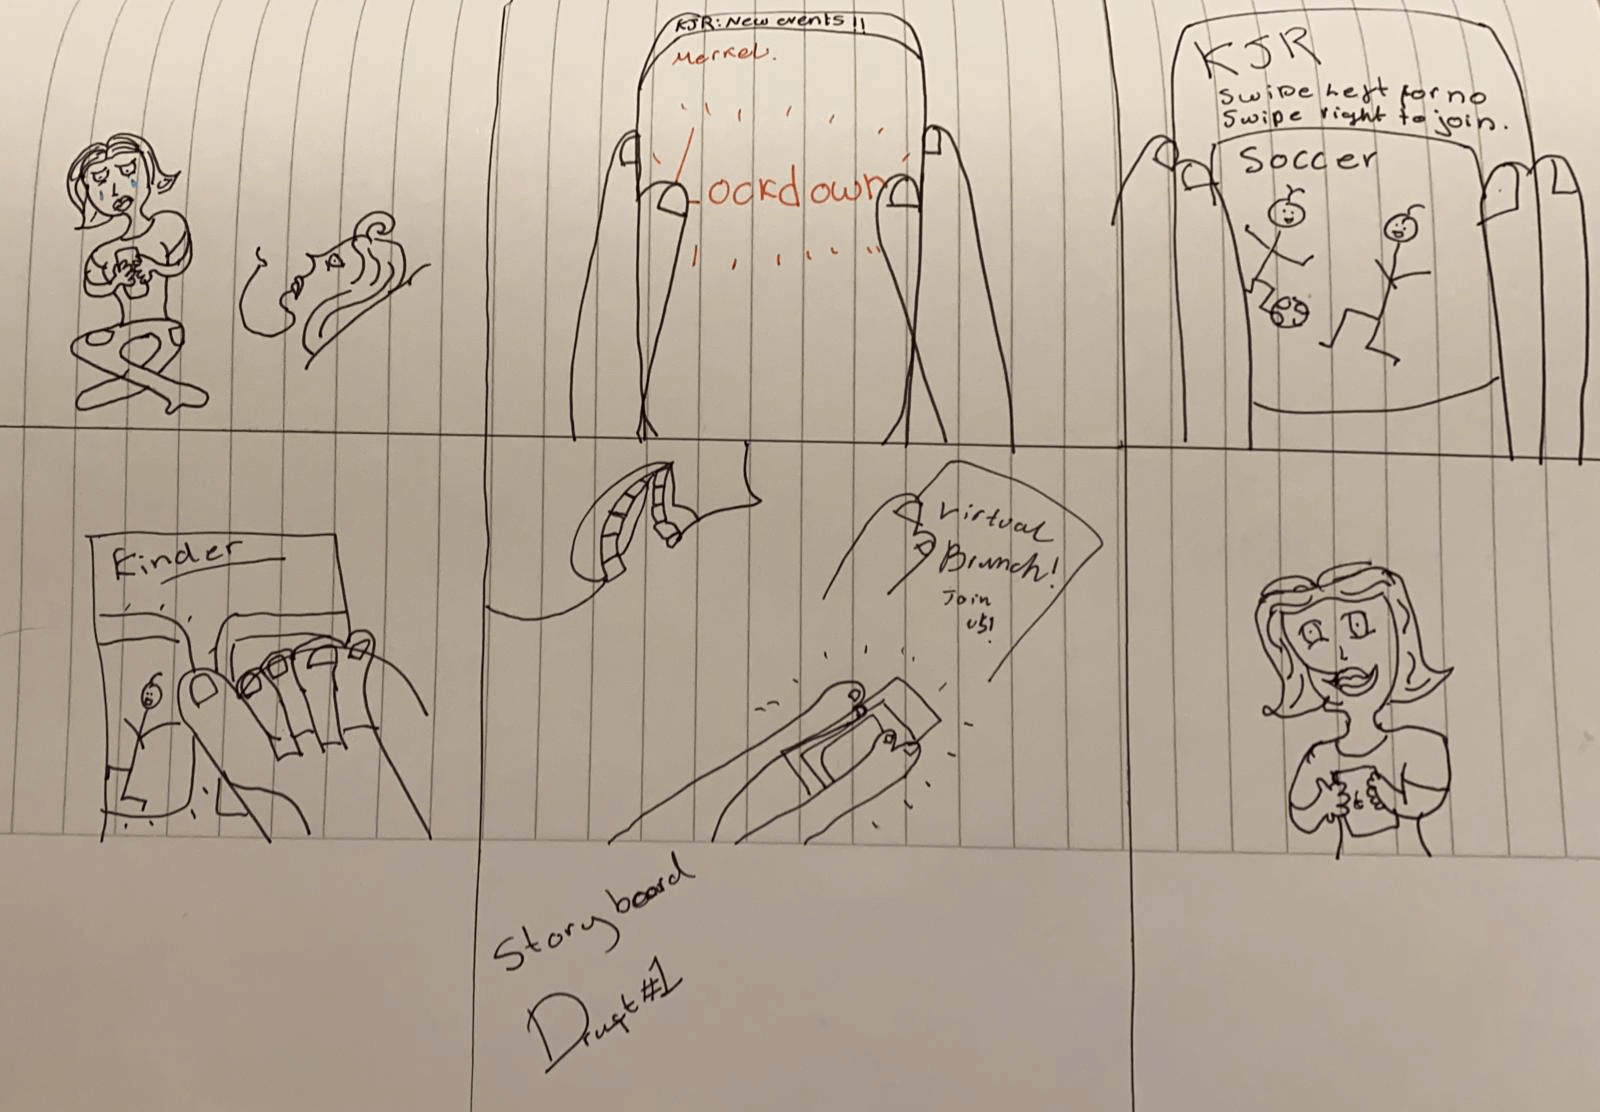 KJR: New events !!
Merkel.
Lockdown
KJR
Swipe Left for no
Swipe right to join.
Soccer
Kinder
Virtual
Brunch!
Join
us!
Storyboard
Draft #1